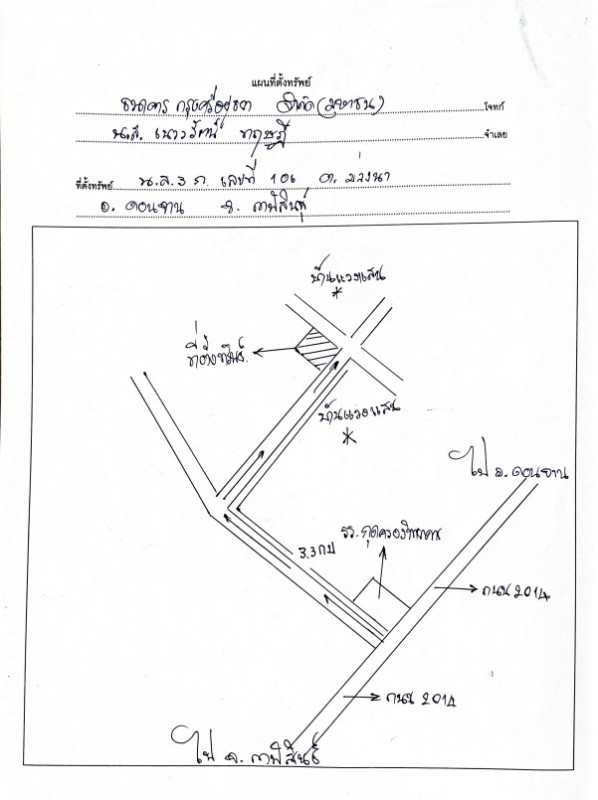 แผนที่ตั้งทรัพย์
ธนาคาร กรุงศรีอยุธยา จำกัด (มหาชน) โจทก์
น.ส. เนาวรัตน์ จำเลย
ที่ตั้งทรัพย์ น.ส.3 ก. เลขที่ 106 ต. ม่วงนา
อ. ดอนจาน จ. กาฬสินธุ์
บ้านแวงแสน
ที่ตั้งทรัพย์
บ้านแวงแสน
ไป อ. ดอนจาน
รร. กุดครองวิทยาคาร
3.3 กม
ถนน 2014
ถนน 2014
ไป จ. กาฬสินธุ์